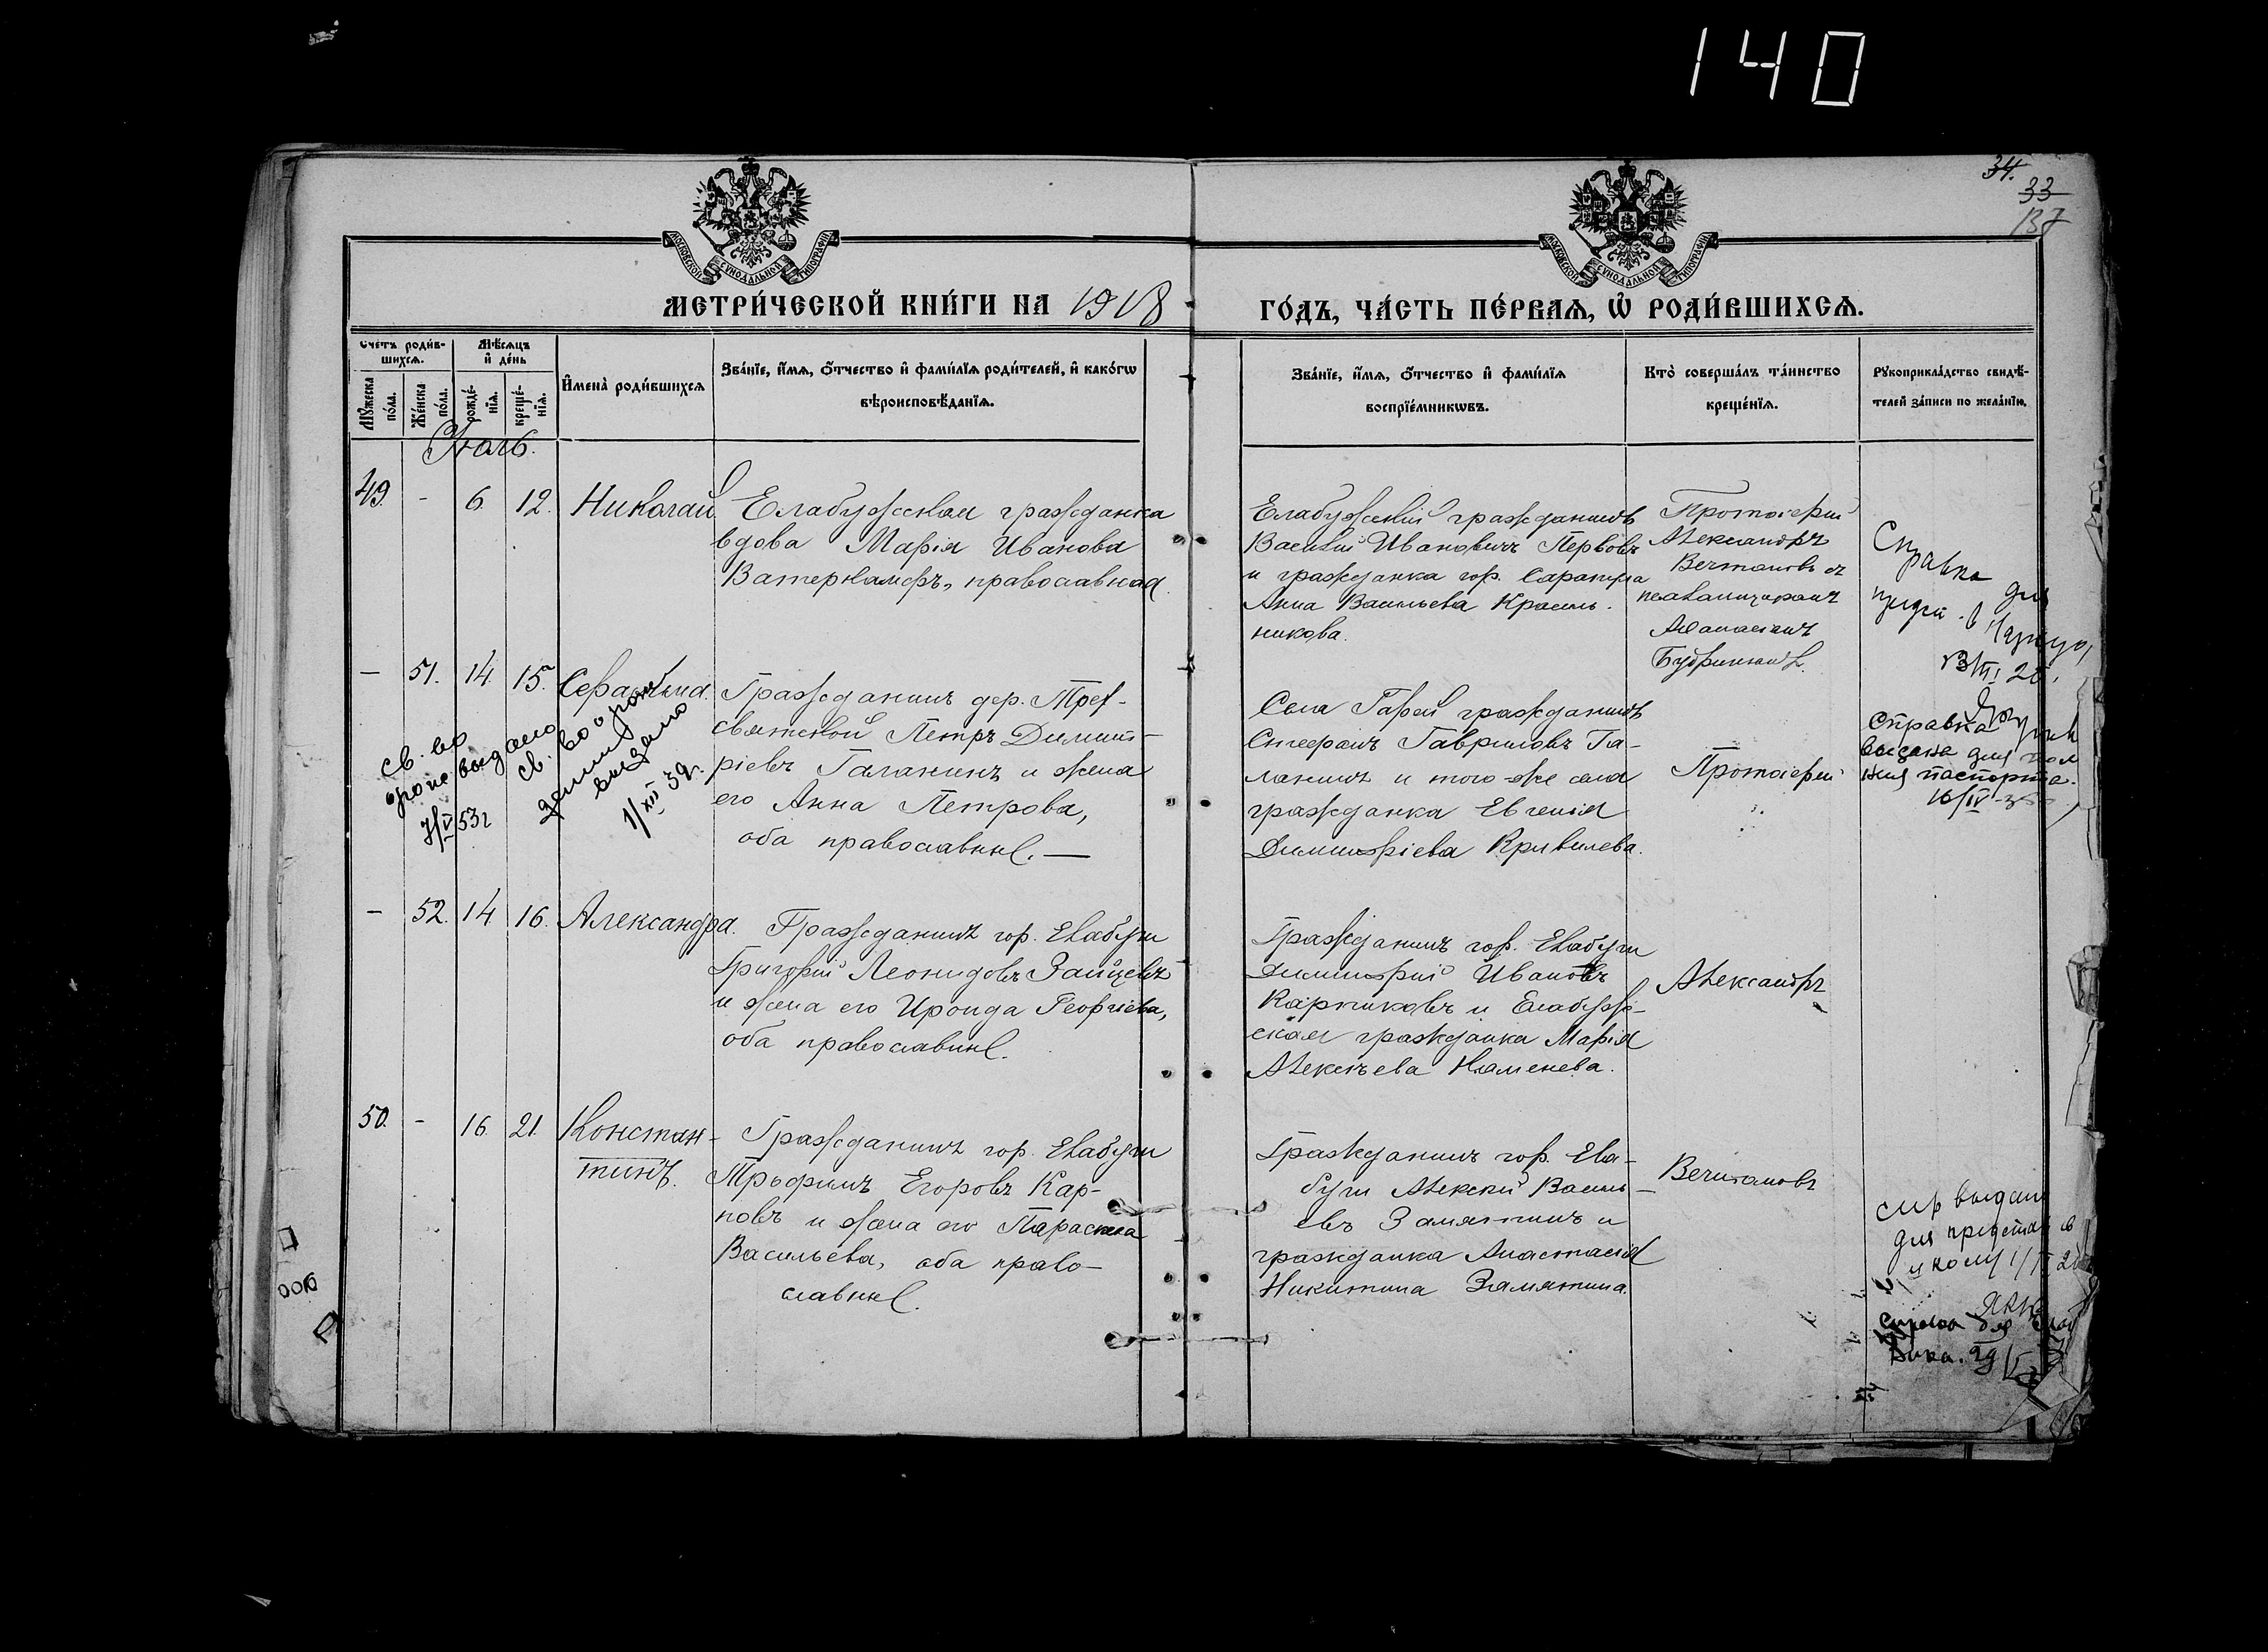 140
34.
33
137
МОСКОВСКОЙ СѴНОДАЛЬНОЙ ТИПОГРАФІИ
МОСКОВСКОЙ СѴНОДАЛЬНОЙ ТИПОГРАФІИ
МЕТРИ́ЧЕСКОЙ КНИ́ГИ НА 1918
ГО́ДЪ, ЧА́СТЬ ПЕ́РВАѦ, Ѡ҆ РОДИ́ВШИХСѦ.
Сче́тъ роди́в-
шихсѧ.
Мѣ́сѧцъ
и҆ де́нь
Мꙋ́жеска
по́ла.
Же́нска
по́ла.
рожде́-
нїѧ.
креще́-
нїѧ.
И҆мена̀ роди́вшихсѧ
Зва́нїе, и҆́мѧ, ѻ҆́тчество и҆ фами́лїѧ роди́телей, и҆ како́гѡ
вѣроисповѣ́данїѧ.
Зва́нїе, и҆́мѧ, ѻ҆́тчество и҆ фами́лїѧ
воспрїе́мникѡвъ.
Кто̀ соверша́лъ та́инство
креще́нїѧ.
Рꙋкоприкла́дство свидѣ́-
телей за́писи по жела́нїю.
Іюль.
49. - 6 12. Николай.
Елабужская гражданка
вдова Марія Иванова
Ватеркампфъ, православная.
Елабужскій гражданинъ
Василій Ивановичъ Первовъ
и гражданка гор. Сарапула
Анна Васильева Красиль-
никова.
Протоіерей
Александръ
Вечтомовъ съ
псаломщикомъ
Афанасіемъ
Будринымъ.
Справка
для
— 51. 14 15. Серафима.
Гражданинъ дер. Трех-
святской Петръ Димит-
ріевъ Галанинъ и жена
его Анна Петрова,
оба православные. —
Села Гарей гражданинъ
Стефанъ Гавриловъ Га-
ланинъ и того-же села
гражданка Евгенія
Димитріева Кривилева.
Протоіерей
св. во
выдано
7/V 53г
св. во о рож
дении
выдано
1/XII 39г.
Справка
выдана для
паспорта.
16/IV
— 52. 14 16. Александра.
Гражданинъ гор. Елабуги
Григорій Леонидовъ Зайцевъ
и жена его Ироида Георгіева,
оба православные.
Гражданинъ гор. Елабуги
Димитрій Ивановъ
Карпиковъ и Елабуж-
ская гражданка Марія
Алексѣева Каменева.
Александръ
50. - 16. 21. Констан-
тинъ.
Гражданинъ гор. Елабуги
Трофимъ Егоровъ Кар-
повъ и жена его Параскева
Васильева, оба право-
славные.
Гражданинъ гор. Ела-
буги Алексѣй Василь-
евъ Замятинъ и
гражданка Анастасія
Никитина Замятина.
Вечтомовъ